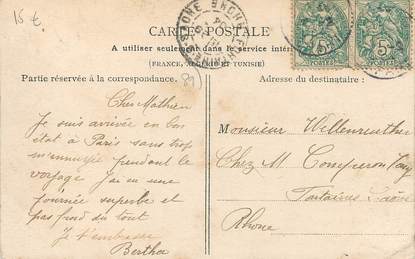 15 €
CARTE POSTALE
A utiliser seulement dans le service intérieur
(FRANCE, ALGÉRIE ET TUNISIE)
Partie réservée à la correspondance.
Adresse du destinataire :
89
Cher Mathieu
Je suis arrivée en bon
état à Paris sans trop
m'ennuyée pendant le
voyage J'ai eu une
journée superbe et
pas froid du tout
Je t'embrasse
Berthe
Monsieur Willenreuther
Chez M
Fontaines Saône
Rhône
5
POSTES
5
POSTES
RHONE